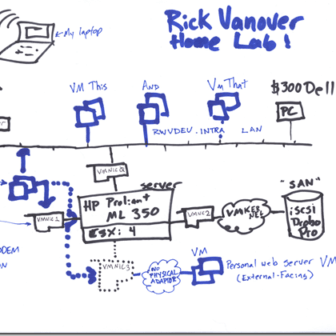 Rick Vanover
Home Lab!
My laptop
VM This
And
VM That
$300 Dell
PC
RWVDEV.INTRA LAN
VMNIC0
server
HP Proliant
ML 350
ESX: 4
VMNIC1
VMNIC2
VMKERNEL
"SAN"
iSCSI
Drobo
Pro
VMNIC3
NO
PHYSICAL
ADAPTER
VM
Personal web server VM
(External-Facing)